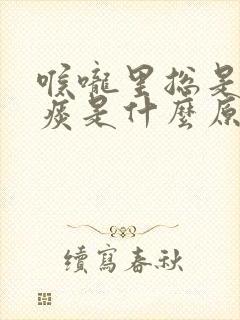 喉嚨里総是
痰是什麼原
續寫春秋